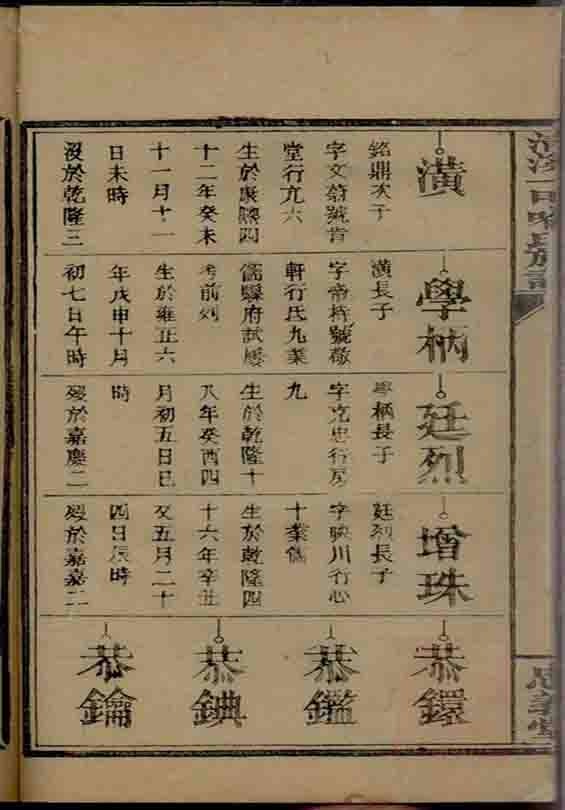 潢
銘鼎次子
字文蔚號肯
堂行亢六
生於康熙四
十二年癸未
十一月十一
日未時
沒於乾隆三
學柄
潢長子
字帝持號敬
軒行氏九業
儒縣府試屢
考前列
生於雍正六
年戊申十月
初七日午時
廷烈
學柄長子
字克忠行房
九
生於乾隆十
八年癸酉四
月初五日巳
時
歿於嘉慶二
增珠
廷烈長子
字映川行心
十業儒
生於乾隆四
十六年辛丑
又五月二十
四日辰時
歿於嘉嘉二
恭鐶
恭鑑
恭錪
恭鑰